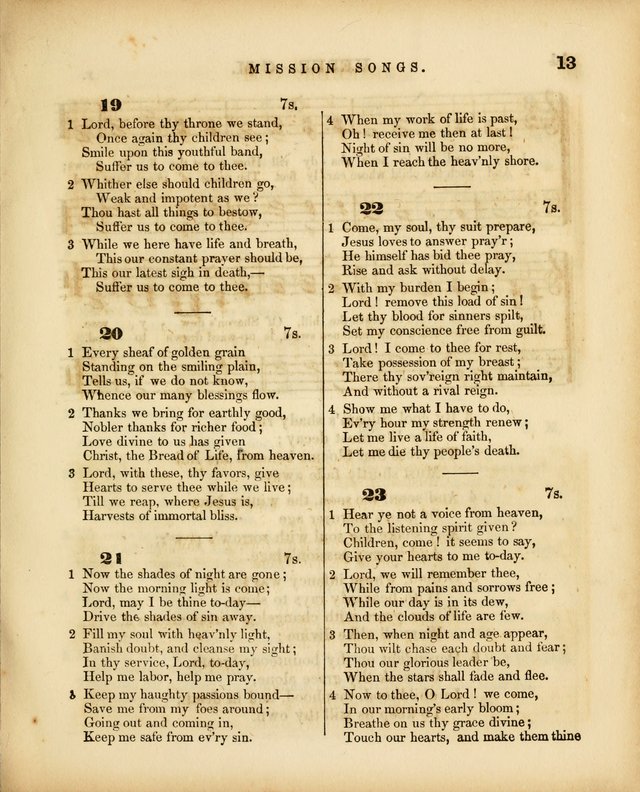 MISSION SONGS.
13
19 7s.
1 Lord, before thy throne we stand,
Once again thy children see;
Smile upon this youthful band,
Suffer us to come to thee.
2 Whither else should children go,
Weak and impotent as we?
Thou hast all things to bestow,
Suffer us to come to thee.
3 While we here have life and breath,
This our constant prayer should be,
This our latest sigh in death,—
Suffer us to come to thee.
20 7s.
1 Every sheaf of golden grain
Standing on the smiling plain,
Tells us, if we do not know,
Whence our many blessings flow.
2 Thanks we bring for earthly good,
Nobler thanks for richer food;
Love divine to us has given
Christ, the Bread of Life, from heaven.
3 Lord, with these, thy favors, give
Hearts to serve thee while we live;
Till we reap, where Jesus is,
Harvests of immortal bliss.
21 7s.
1 Now the shades of night are gone;
Now the morning light is come;
Lord, may I be thine to-day—
Drive the shades of sin away.
2 Fill my soul with heav'nly light,
Banish doubt, and cleanse my sight;
In thy service, Lord, to-day,
Help me labor, help me pray.
3 Keep my haughty passions bound—
Save me from my foes around;
Going out and coming in,
Keep me safe from ev'ry sin.
4 When my work of life is past,
Oh! receive me then at last!
Night of sin will be no more,
When I reach the heav'nly shore.
22 7s.
1 Come, my soul, thy suit prepare,
Jesus loves to answer pray'r;
He himself has bid thee pray,
Rise and ask without delay.
2 With my burden I begin;
Lord! remove this load of sin!
Let thy blood for sinners spilt,
Set my conscience free from guilt.
3 Lord! I come to thee for rest,
Take possession of my breast;
There thy sov'reign right maintain,
And without a rival reign.
4 Show me what I have to do,
Ev'ry hour my strength renew;
Let me live a life of faith,
Let me die thy people's death.
23 7s.
1 Hear ye not a voice from heaven,
To the listening spirit given?
Children, come! it seems to say,
Give your hearts to me to-day.
2 Lord, we will remember thee,
While from pains and sorrows free;
While our day is in its dew,
And the clouds of life are few.
3 Then, when night and age appear,
Thou wilt chase each doubt and fear;
Thou our glorious leader be,
When the stars shall fade and flee.
4 Now to thee, O Lord! we come,
In our morning's early bloom;
Breathe on us thy grace divine;
Touch our hearts, and make them thine